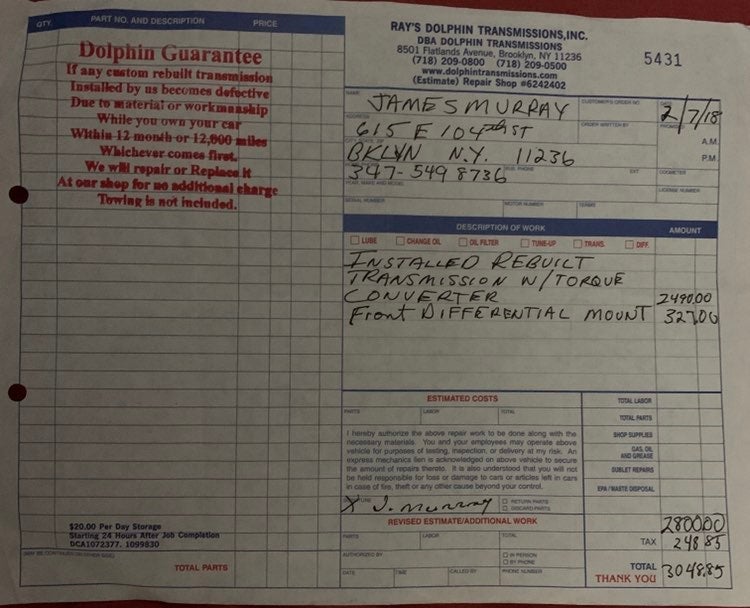 QTY. PART NO. AND DESCRIPTION PRICE
Dolphin Guarantee
If any custom rebuilt transmission
Installed by us becomes defective
Due to material or workmanship
While you own your car
Within 12 month or 12,000 miles
Whichever comes first.
We will repair or Replace it
At our shop for no additional charge
Towing is not included.
$20.00 Per Day Storage
Starting 24 Hours After Job Completion
DCA1072377. 1099830
(MAY BE CONTINUED ON OTHER SIDE)
TOTAL PARTS
RAY'S DOLPHIN TRANSMISSIONS,INC.
DBA DOLPHIN TRANSMISSIONS
8501 Flatlands Avenue, Brooklyn, NY 11236
(718) 209-0800 (718) 209-0500
www.dolphintransmissions.com
(Estimate) Repair Shop #6242402
5431
NAME JAMES MURRAY CUSTOMER'S ORDER NO. DATE 2/7/18
ADDRESS 615 E 104th ST ORDER WRITTEN BY PROMISED
A.M.
BKLYN N.Y. 11236 P.M.
347-549 8736 BUS. PHONE EXT. ODOMETER
YEAR, MAKE AND MODEL LICENSE NUMBER
SERIAL NUMBER MOTOR NUMBER TERMS
DESCRIPTION OF WORK AMOUNT
LUBE CHANGE OIL OIL FILTER TUNE-UP TRANS. DIFF.
INSTALLED REBUILT
TRANSMISSION W/TORQUE
CONVERTER 2490.00
Front DIFFERENTIAL MOUNT 327.00
ESTIMATED COSTS
PARTS LABOR TOTAL
I hereby authorize the above repair work to be done along with the
necessary materials. You and your employees may operate above
vehicle for purposes of testing, inspection, or delivery at my risk. An
express mechanics lien is acknowledged on above vehicle to secure
the amount of repairs thereto. It is also understood that you will not
be held responsible for loss or damage to cars or articles left in cars
in case of fire, theft or any other cause beyond your control.
X J. Murray RETURN PARTS
DISCARD PARTS
REVISED ESTIMATE/ADDITIONAL WORK
PARTS LABOR TOTAL
AUTHORIZED BY IN PERSON
BY PHONE
DATE TIME CALLED BY PHONE NUMBER
TOTAL LABOR
TOTAL PARTS
SHOP SUPPLIES
GAS, OIL
AND GREASE
SUBLET REPAIRS
EPA / WASTE DISPOSAL
2800.00
TAX 248.85
TOTAL 3048.85
THANK YOU